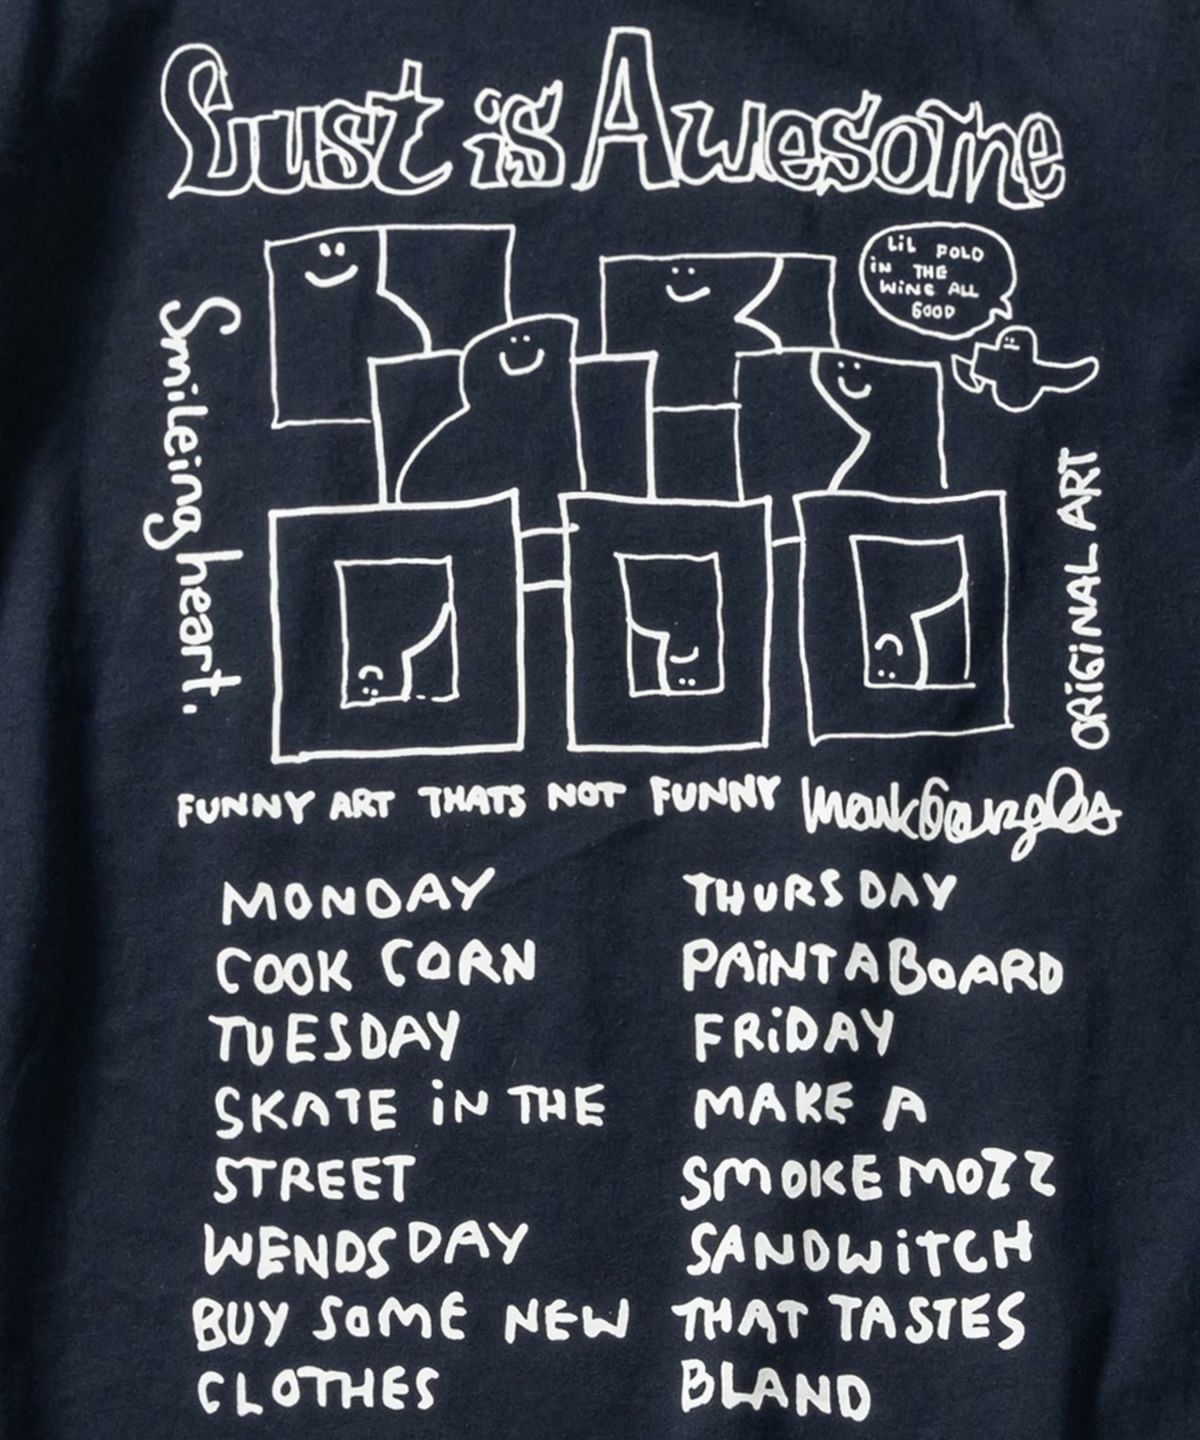 Lust is Awesome
LiL FOLD
iN THE
WiNG ALL
GOOD
Smileing heart.
ORiGiNAL ART
FUNNY ART THATS NOT FUNNY Mark Gonzales
MONDAY
COOK CORN
TUESDAY
SKATE iN THE
STREET
WENDSDAY
BUY SOME NEW
CLOTHES
THURSDAY
PAiNT A BOARD
FRiDAY
MAKE A
SMOKE MOZZ
SANDWiTCH
THAT TASTES
BLAND